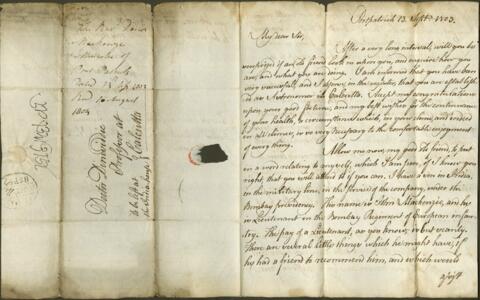 Portpatrick 13 Septr. 1803.
My dear Sir,
After a very long interval, will you be
surprised if an old friend look in where you, and enquire how you
are, and what you are doing. I am informed that you have been
very successful, and I
as an Astronomer at Calcutta. Accept my congratulations
upon your good fortune, and my best wishes for the continuance
of your health, a circumstance which, in your clime, and indeed
in all climes, is so very necessary to the comfortable enjoyment
of every thing.
Allow me now, my good old friend, to put
in a word relating to myself, which I am sure, if I know you
right, that you will attend to if you can. I have a son in India,
in the military line, in the service of the company, under the
Bombay presidency. His name is John Mackenzie, and he
is Lieutenant in the Bombay Regiment of European infan-
try. The pay of a Lieutenant, as you know, is but scanty.
There are several little things which he might have, if
he had a friend to recommend him, and which would
assist
The Revd. Doctr.
Mackenzie
Minister of
Port Patrick
Dated 13 Sept. 1803
Recd. 10 August
1804
Doctor Dinwiddie
Professor at
Calcutta
to be left at
the India house